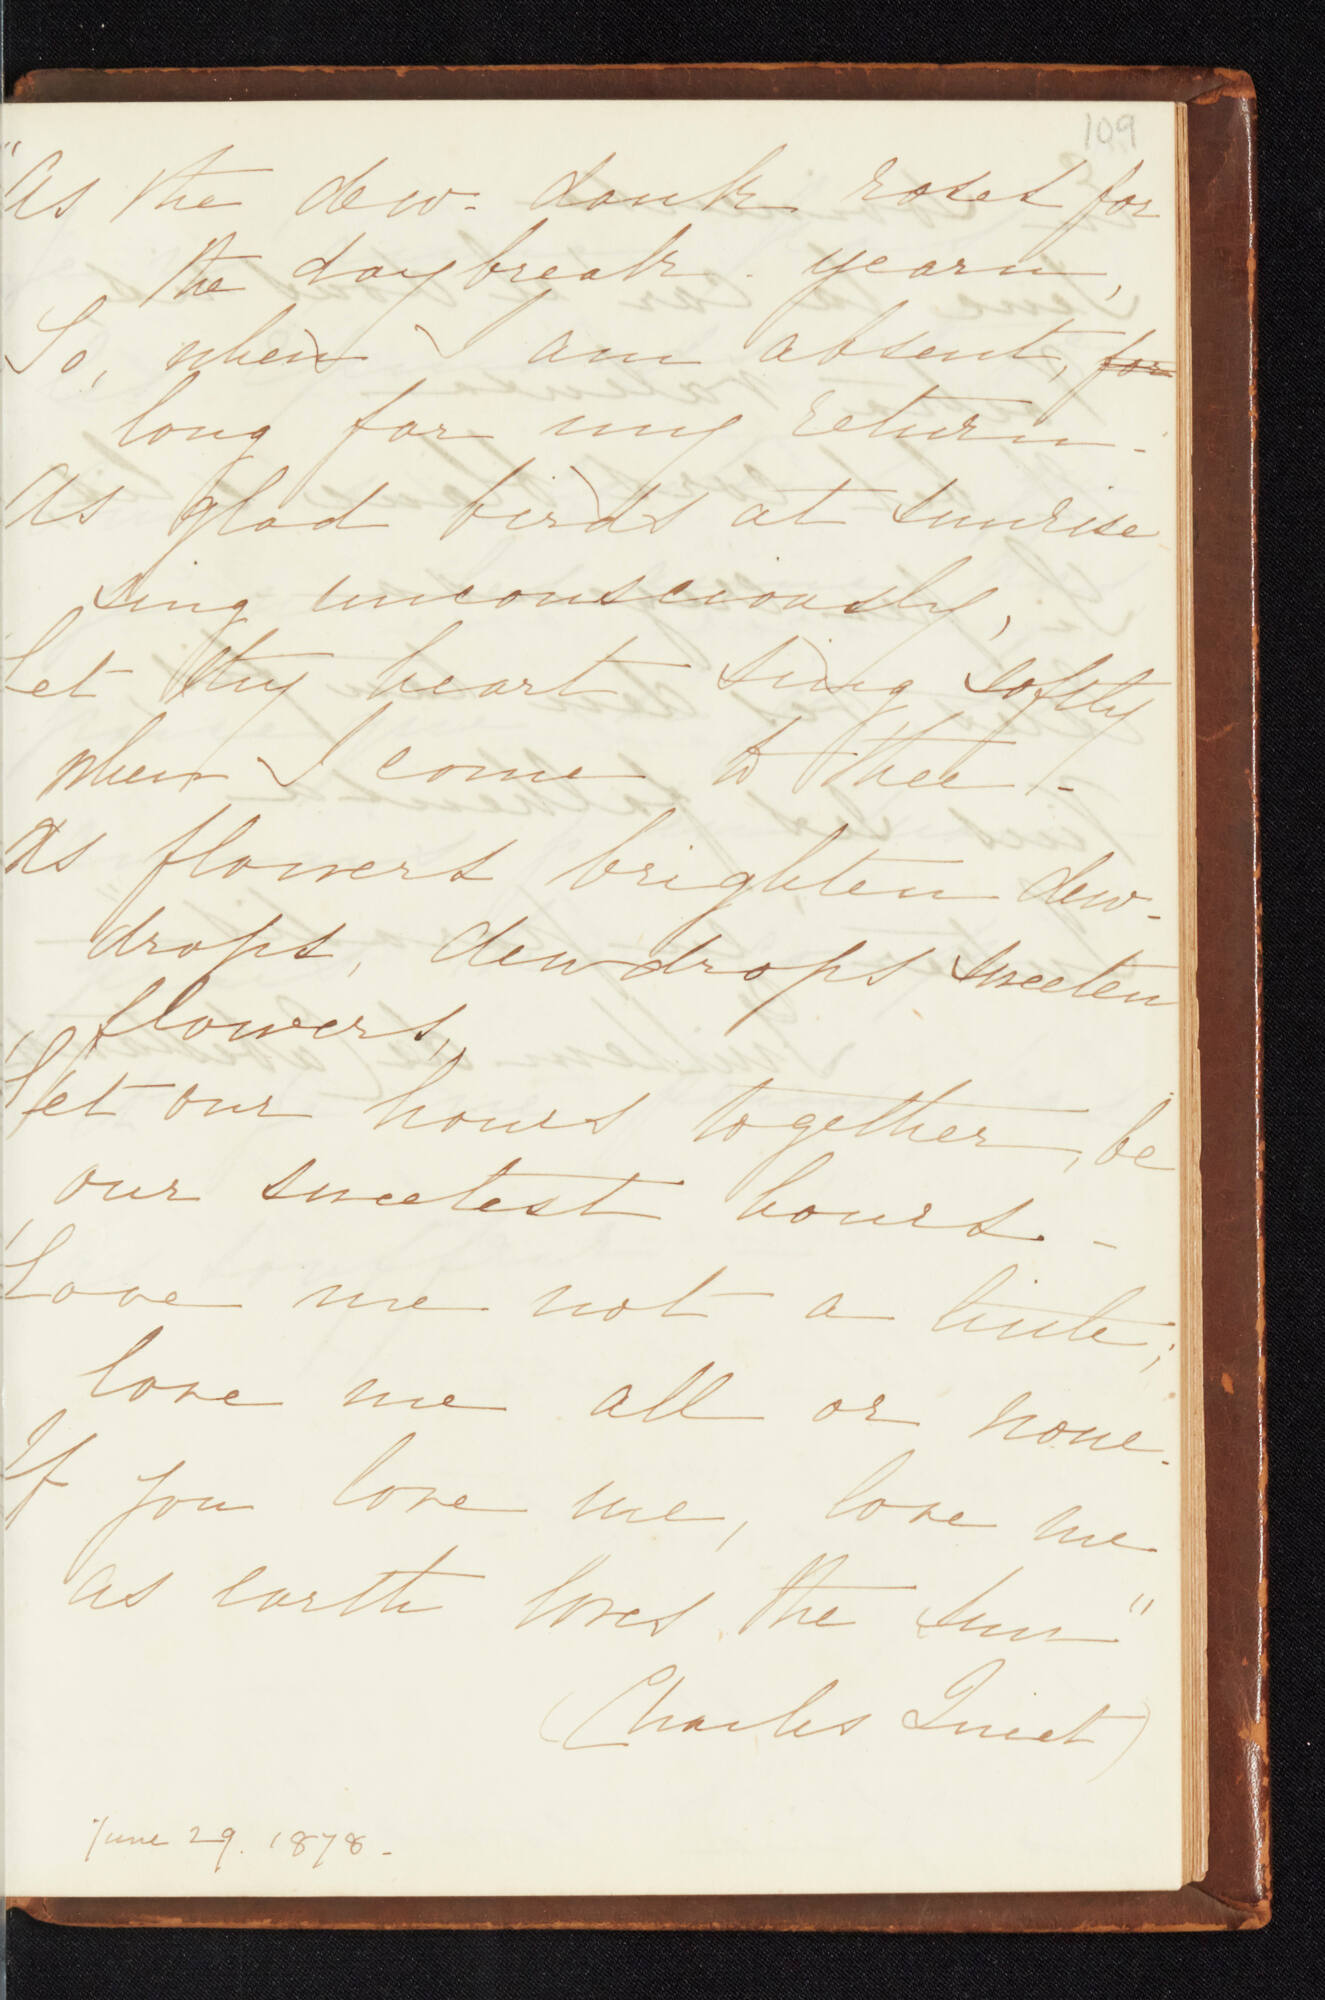 109
"As the dew-dank roses for
the daybreak yearn,
So, when I am absent, for
long for my return.
As glad birds at sunrise
sing unconsciously,
Let thy heart sing softly
when I come to thee.
As flowers brighten dew-
drops, dewdrops sweeten
flowers,
Let our hours together, be
our sweetest hours -
Love me not a little;
love me all or none.
If you love me, love me
as earth loves the sun"
(Charles Quiet)
June 29. 1878 -